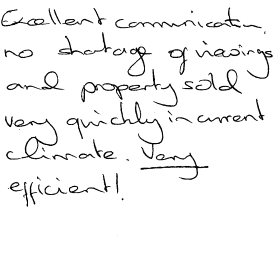 Excellent communication,
no shortage of viewings
and property sold
very quickly in current
climate. Very
efficient!